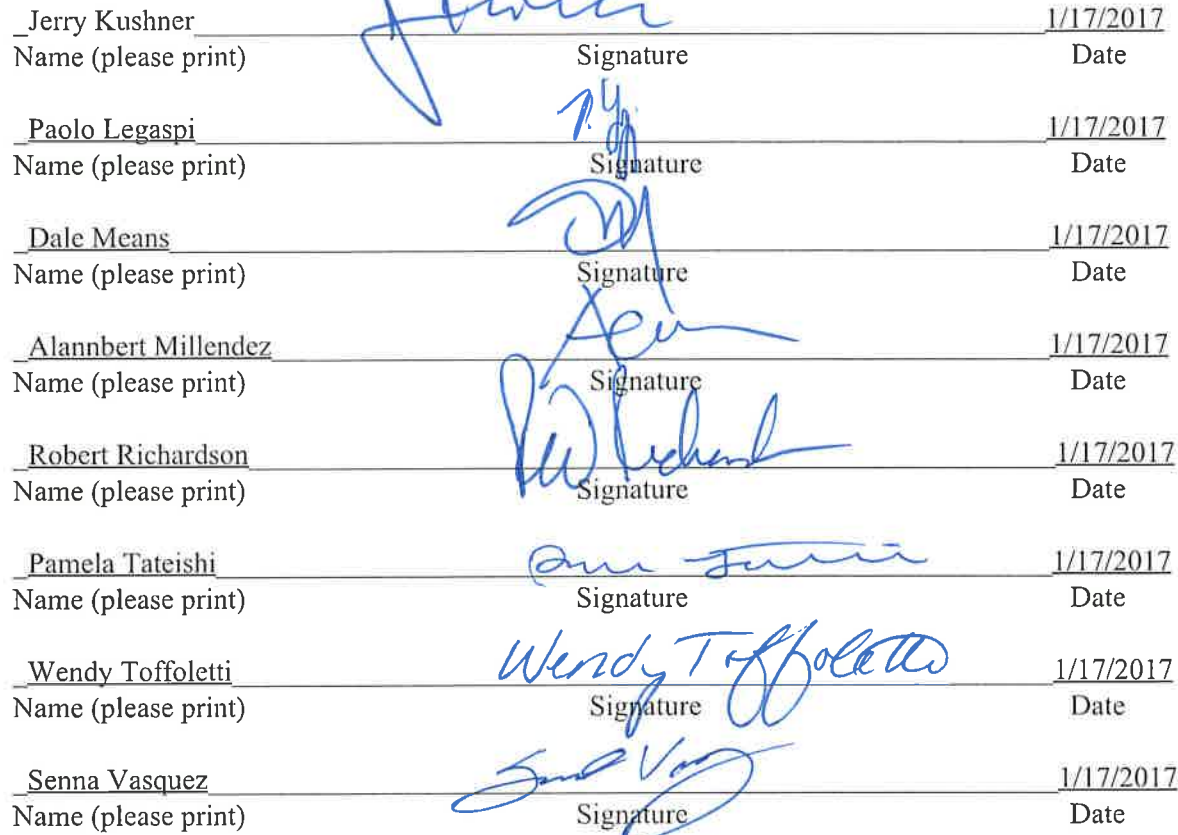 _Jerry Kushner 1/17/2017
Name (please print) Signature Date
_Paolo Legaspi 1/17/2017
Name (please print) Signature Date
_Dale Means 1/17/2017
Name (please print) Signature Date
_Alannbert Millendez 1/17/2017
Name (please print) Signature Date
_Robert Richardson 1/17/2017
Name (please print) Signature Date
_Pamela Tateishi 1/17/2017
Name (please print) Signature Date
_Wendy Toffoletti Wendy Toffoletti 1/17/2017
Name (please print) Signature Date
_Senna Vasquez 1/17/2017
Name (please print) Signature Date